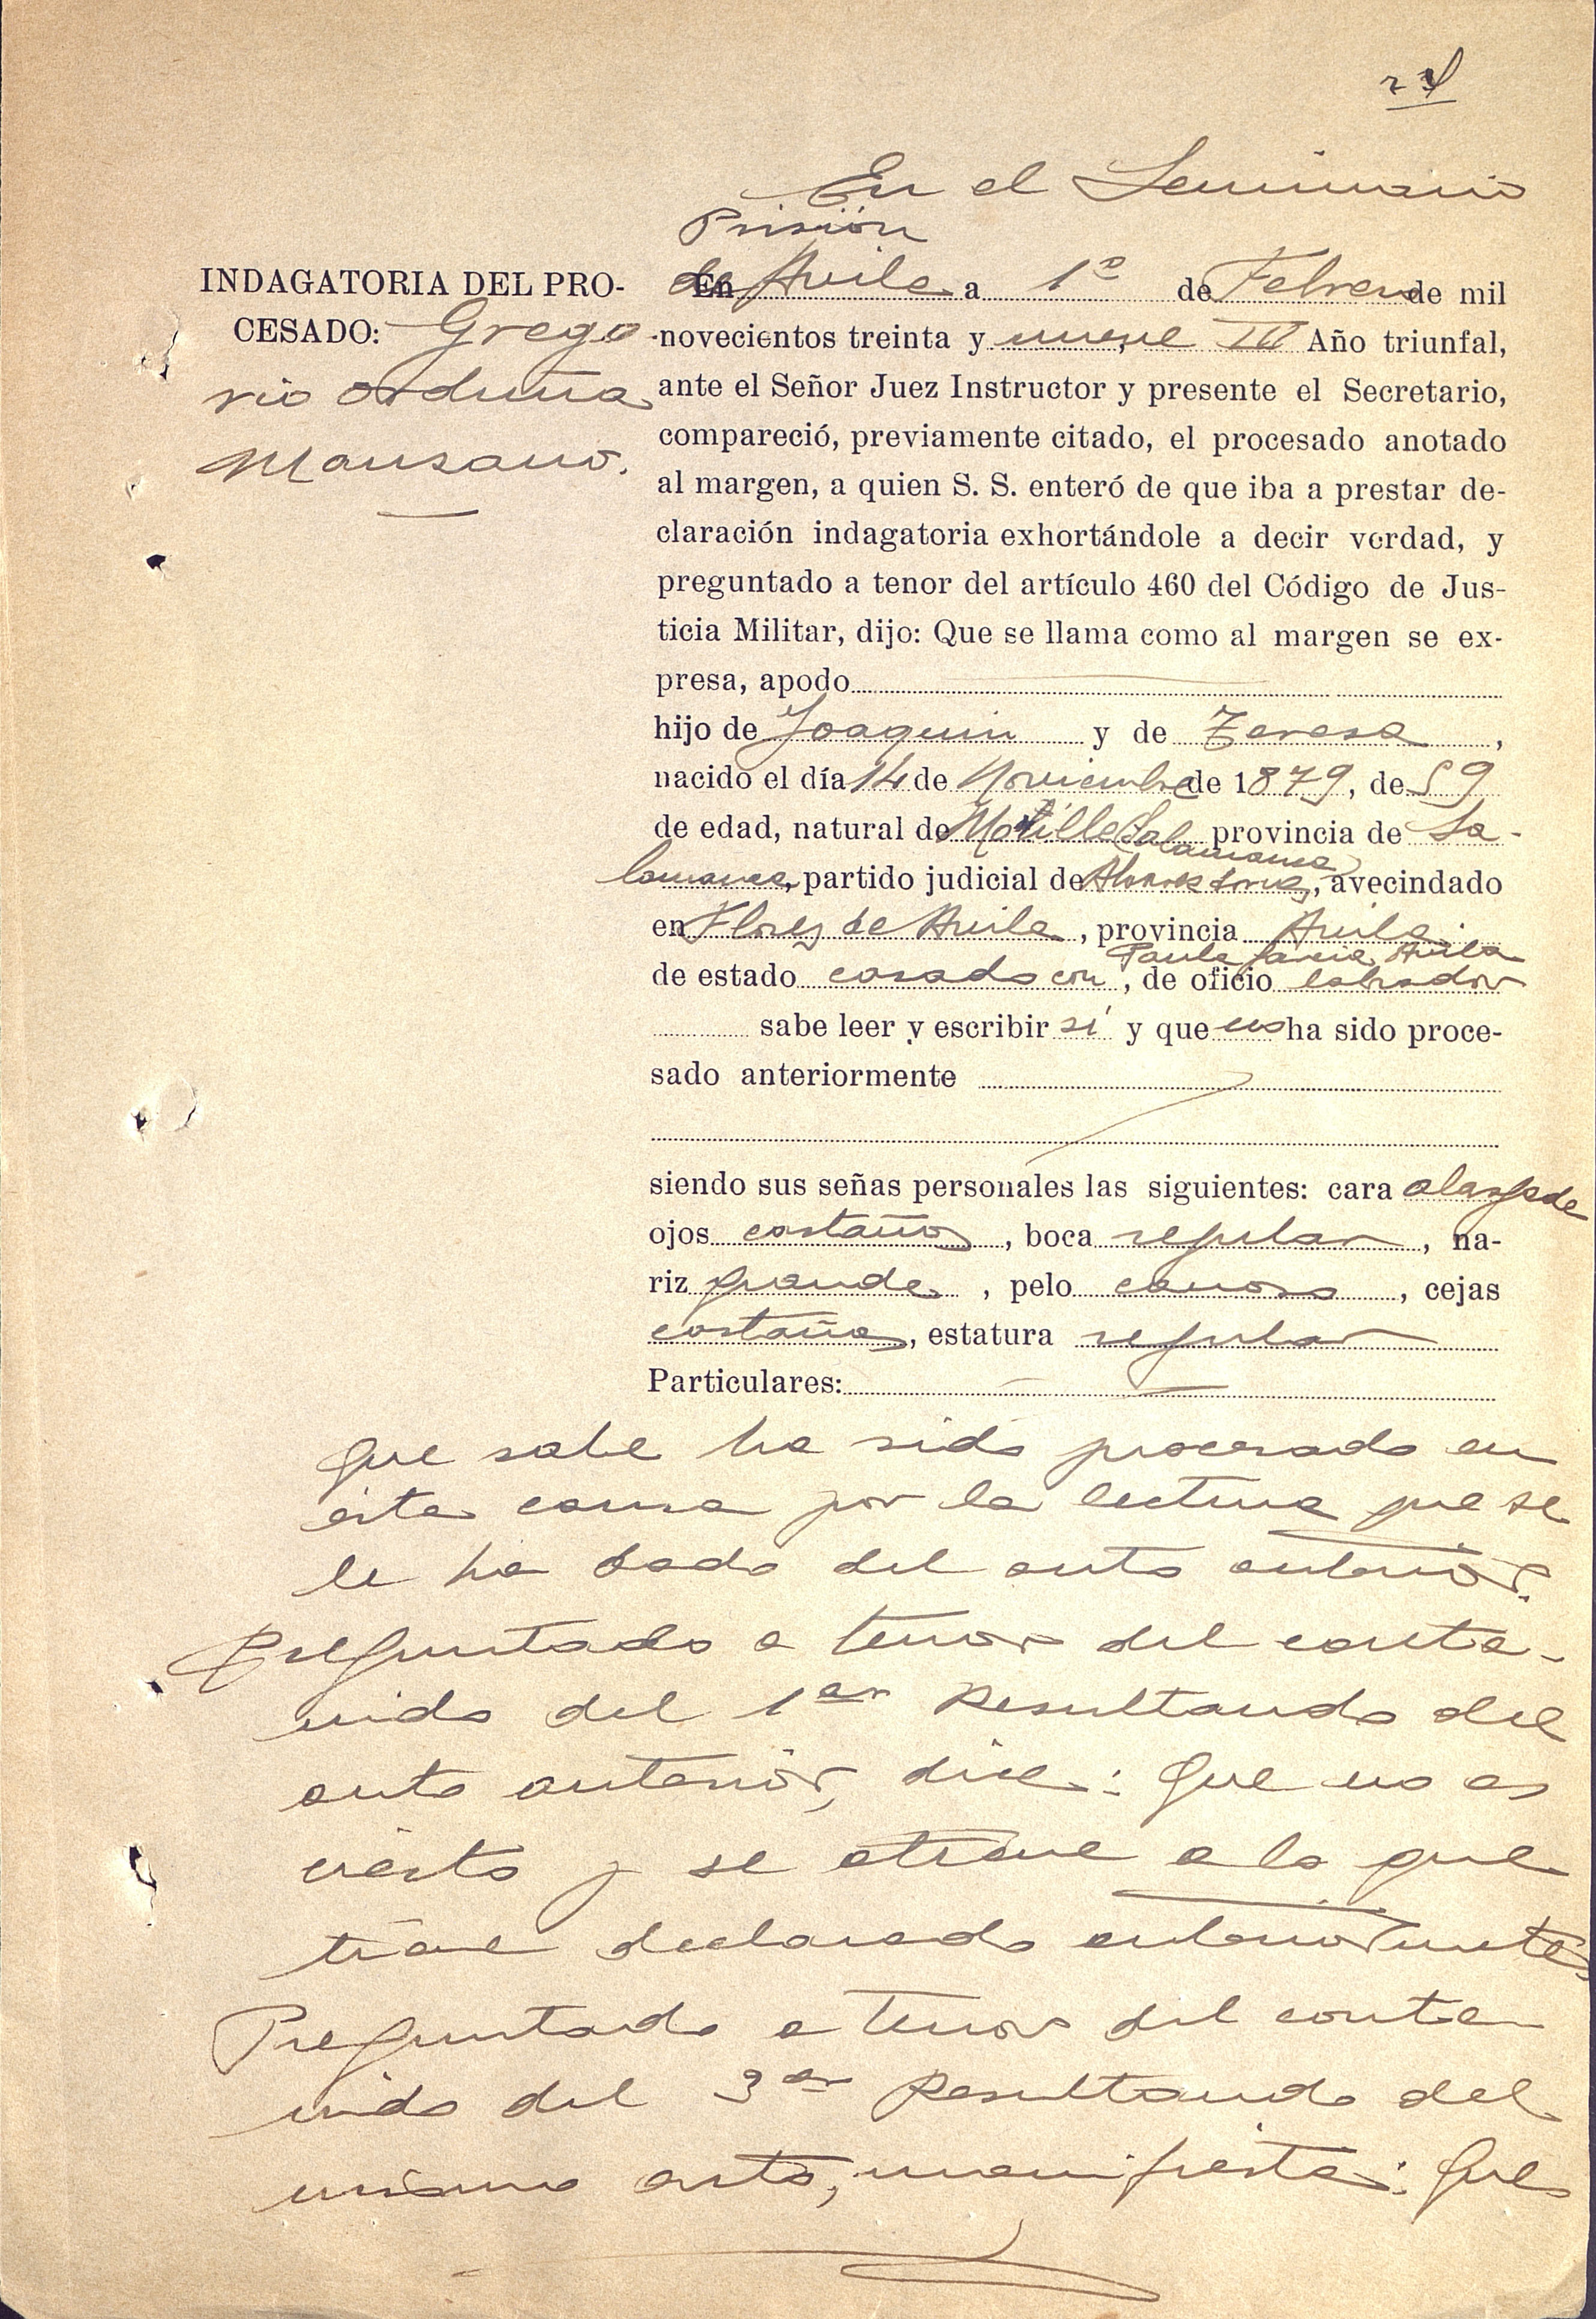 En el Seminario
Prisión
INDAGATORIA DEL PRO-
CESADO: Grego
rio Orduña
Manzano.
de Avila a 1º de Febrero de mil
novecientos treinta y nueve III Año triunfal,
ante el Señor Juez Instructor y presente el Secretario,
compareció, previamente citado, el procesado anotado
al margen, a quien S. S. enteró de que iba a prestar de-
claración indagatoria exhortándole a decir verdad, y
preguntado a tenor del artículo 460 del Código de Jus-
ticia Militar, dijo: Que se llama como al margen se ex-
presa, apodo
hijo de Joaquin y de Teresa,
nacido el día 14 de Noviembre de 1879, de 59
de edad, natural de (Salamanca) provincia de Sa-
lamanca, partido judicial de, avecindado
en Flores de Avila, provincia Avila
de estado casado con Paula Garcia Avila, de oficio labrador
sabe leer y escribir si y que no ha sido proce-
sado anteriormente
siendo sus señas personales las siguientes: cara
ojos castaños, boca regular, na-
riz grande, pelo canoso, cejas
castañas, estatura regular
Particulares:
Que sabe ha sido procesado en
esta causa por la lectura que se
le ha dado del auto anterior.
Preguntado a tenor del conte-
nido del 1er Resultando del
auto anterior, dice: Que no es
cierto y se atiene a lo que
tiene declarado anteriormente.
Preguntado a tenor del conte
nido del 3er Resultando del
mismo auto, manifiesta: Que